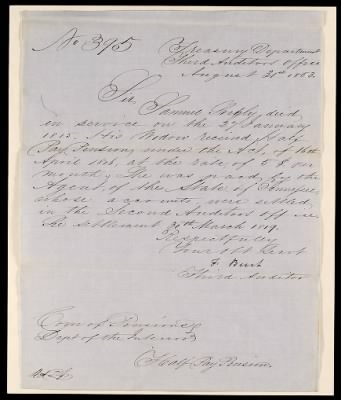 No 395
Treasury Department
Third Auditors Office
August 31st 1853.
Sir,
Samuel died
in service on the 27 January
1815. His Widow received Half
Pay Pension, under the Act, of 16th
April 1816, at the rate of $ pr
month; She was paid by the
Agent, of the State of Tennessee,
whose accounts, were settled
in the Second Auditors office
settlement 30th March 1819.
Respectfully
Your Obt Servt
F. Burt
Third Auditor
Com of Pensions
Dept of the Interior
Half Pay Pension.